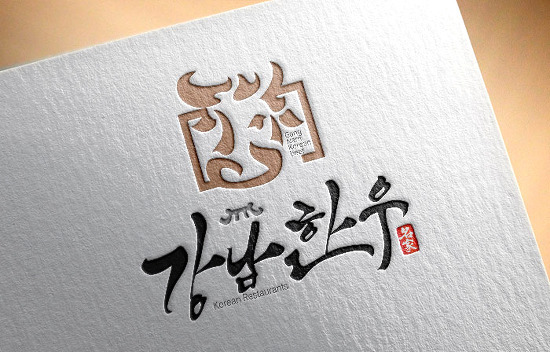 Gang
Nam
Korean
Beef
강남한우
名家
Korean Restaurants